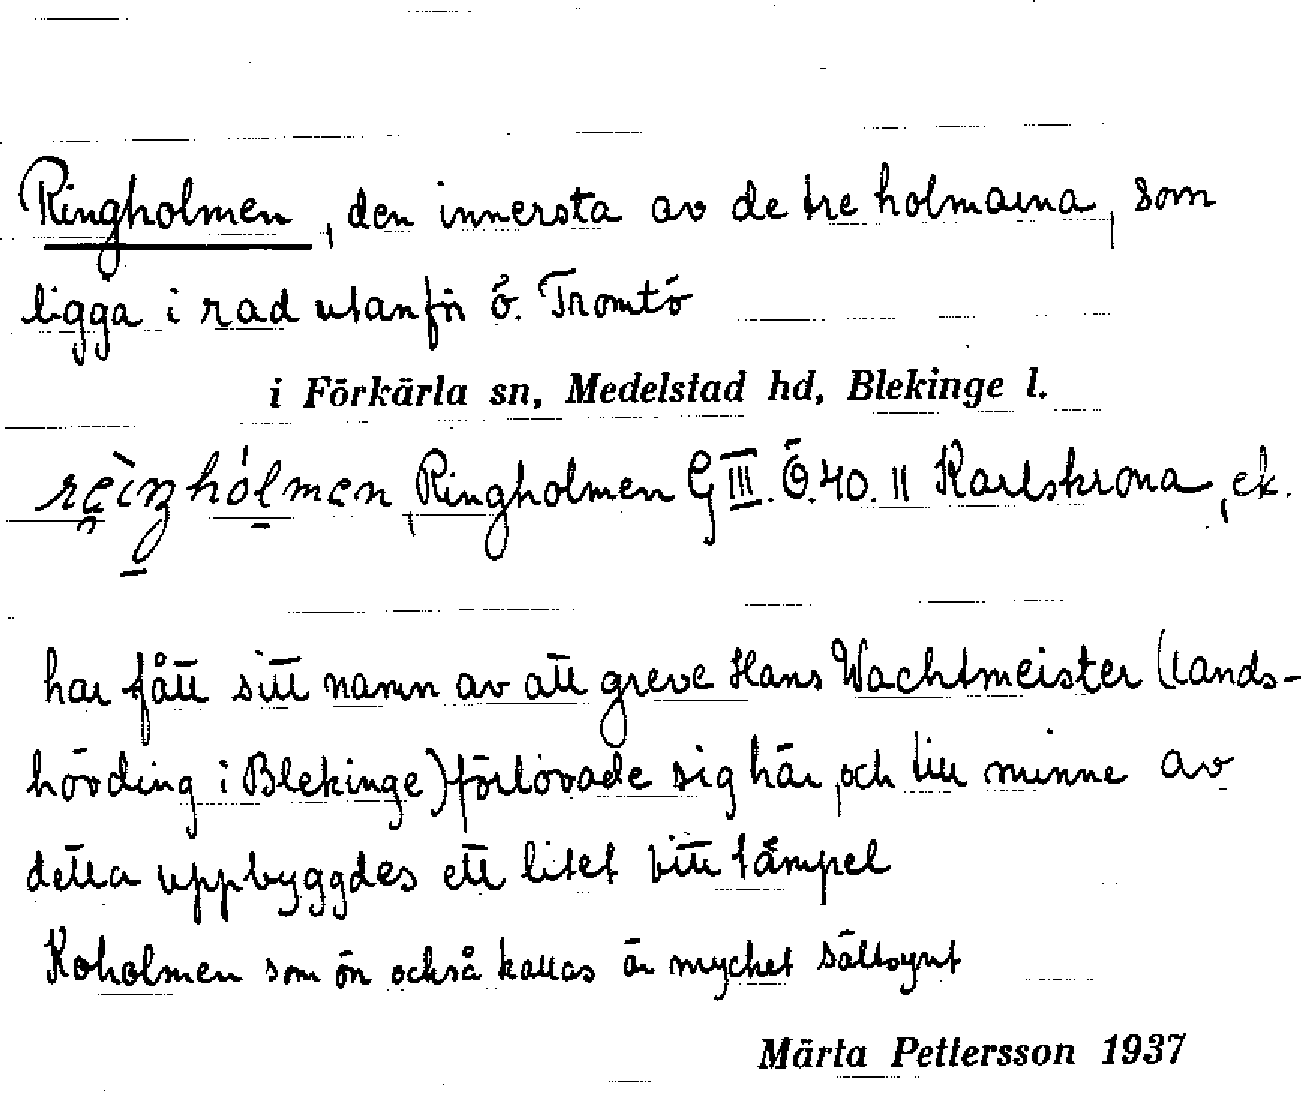 Ringholmen, den innersta av de tre holmarna, som
ligga i rad utanför ö. Tromtö
i Förkärla sn, Medelstad hd, Blekinge l.
Ringholmen G III. Ö. 40. 11 Karlskrona, ek.
har fått sitt namn av att greve Hans Wachtmeister (lands-
hövding i Blekinge) förlovade sig här, och till minne av
detta uppbyggdes ett litet vitt tämpel
Koholmen som ön också kallas är mycket sällsynt
Märta Pettersson 1937